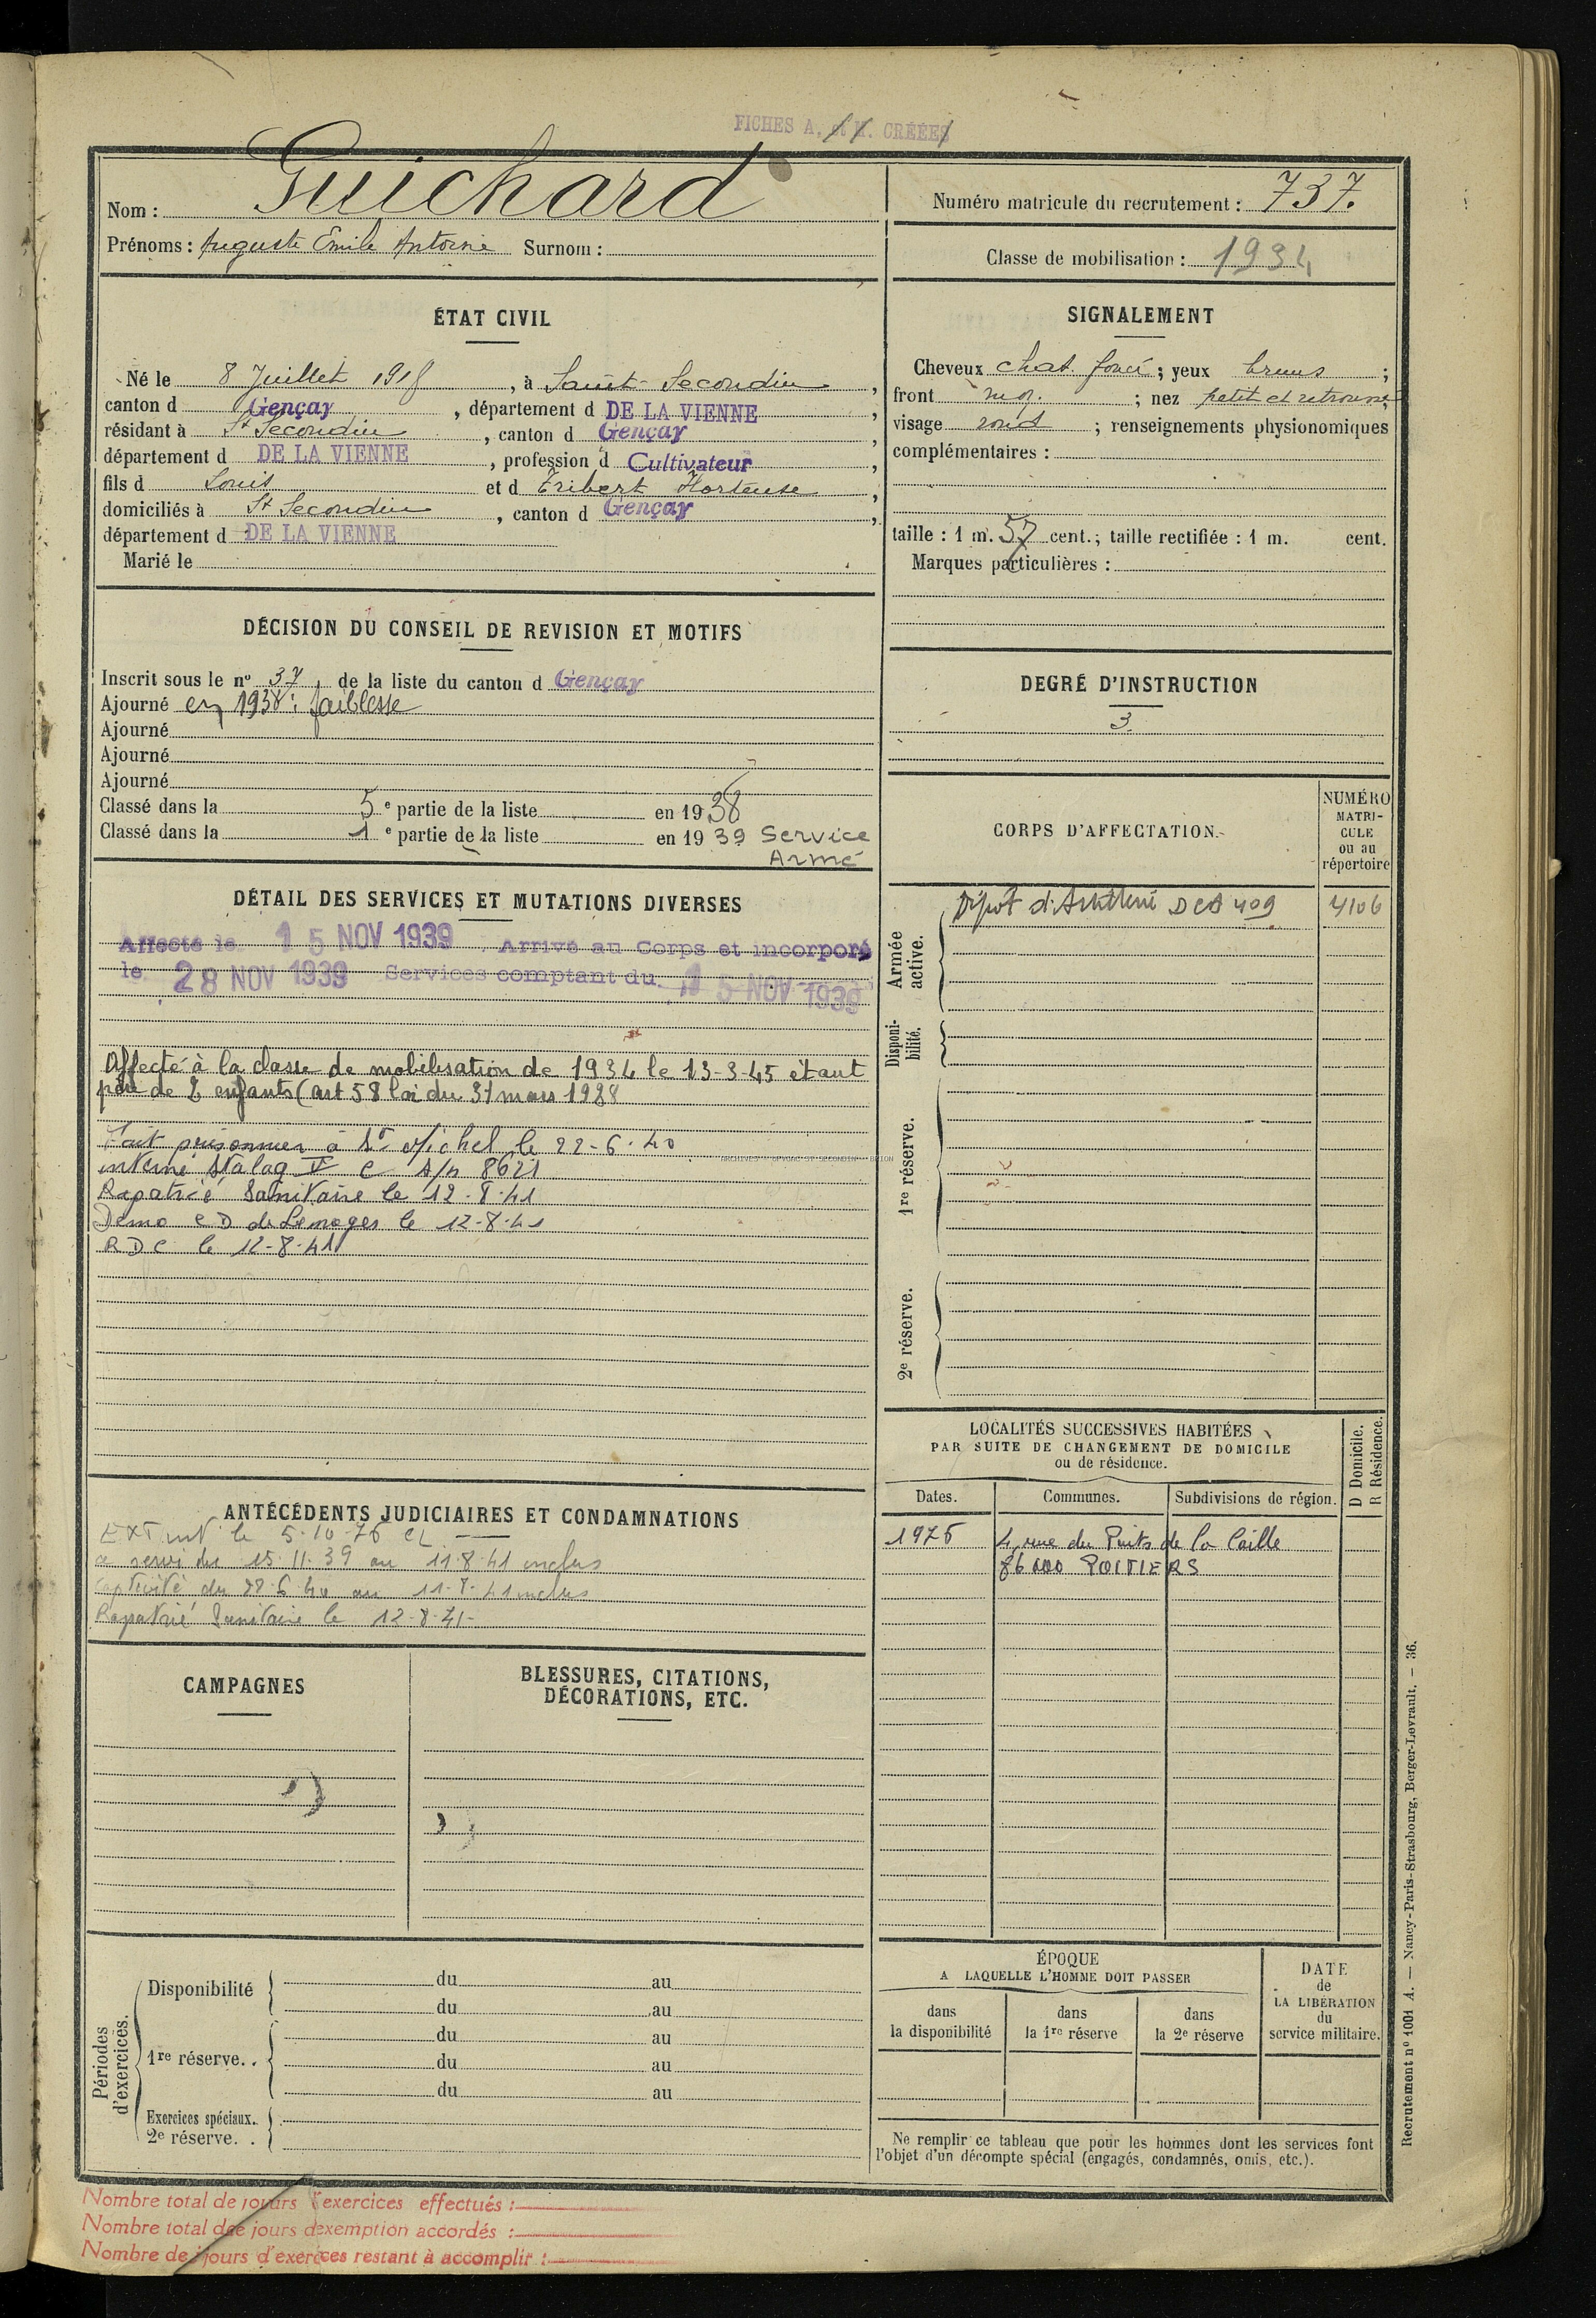 FICHES A, et M. CRÉÉES
Nom : Guichard
Prénoms : Auguste Emile Antoine Surnom :
Numéro matricule du recrutement : 737.
Classe de mobilisation : 1934
ÉTAT CIVIL
Né le 8 Juillet 1918, à Saint-Secondin,
canton d Gençay, département d DE LA VIENNE,
résidant à St Secondin, canton d Gençay,
département d DE LA VIENNE, profession d Cultivateur,
fils d Louis et d Eribert Hortense,
domiciliés à St Secondin, canton d Gençay,
département d DE LA VIENNE
Marié le
SIGNALEMENT
Cheveux chat. foncé ; yeux bruns ;
front moy. ; nez petit et retroussé
visage rond ; renseignements physionomiques
complémentaires :
taille : 1 m. 57 cent. ; taille rectifiée : 1 m. cent.
Marques particulières :
DÉCISION DU CONSEIL DE REVISION ET MOTIFS
Inscrit sous le nº 37 de la liste du canton d Gençay
Ajourné en 1938 : faiblesse
Ajourné
Ajourné
Ajourné
Classé dans la 5 e partie de la liste en 19 38
Classé dans la 1 e partie de la liste en 19 39 Service
Armé
DEGRÉ D'INSTRUCTION
3.
CORPS D'AFFECTATION.
NUMÉRO
MATRI-
CULE
ou au
répertoire
Armée
active.
Dépôt d'Artillerie DCA 409 4106
Disponi-
bilité.
1re réserve.
2e réserve.
DÉTAIL DES SERVICES ET MUTATIONS DIVERSES
Affecté le 15 NOV 1939. Arrivé au Corps et incorporé
le 28 NOV 1939 Services comptant du 15 NOV 1939
Affecté à la classe de mobilisation de 1934 le 13-3-45 étant
père de 2 enfants (art 58 loi du 31 mars 1928
Fait prisonnier à St Michel le 22-6-40
interné Stalag V C S/n 8621
Rapatrié Sanitaire le 12-8-41
Démo CD de Limoges le 12-8-41
RDC le 12-8-41
LOCALITÉS SUCCESSIVES HABITÉES
PAR SUITE DE CHANGEMENT DE DOMICILE
ou de résidence.
D Domicile.
R Résidence.
Dates. Communes. Subdivisions de région.
1976 4, rue du Puits de la Caille
86000 POITIERS
ANTÉCÉDENTS JUDICIAIRES ET CONDAMNATIONS
EXT le 5-10-76
a servi du 15-11-39 au 11-8-41 inclus
captivité du 22-6-40 au 11-8-41 inclus
Rapatrié Sanitaire le 12-8-41-
CAMPAGNES
BLESSURES, CITATIONS,
DÉCORATIONS, ETC.
Périodes
d'exercices.
Disponibilité
du au
du au
1re réserve..
du au
du au
du au
Exercices spéciaux.
2e réserve. .
ÉPOQUE
A LAQUELLE L'HOMME DOIT PASSER
dans
la disponibilité
dans
la 1re réserve
dans
la 2e réserve
DATE
de
LA LIBÉRATION
du
service militaire.
Ne remplir ce tableau que pour les hommes dont les services font
l'objet d'un décompte spécial (engagés, condamnés, omis, etc.).
Nombre total de jours d'exercices effectués :
Nombre total de jours d'exemption accordés :
Nombre de jours d'exercices restant à accomplir :
Recrutement nº 1001 A. — Nancy-Paris-Strasbourg, Berger-Levrault. — 36.